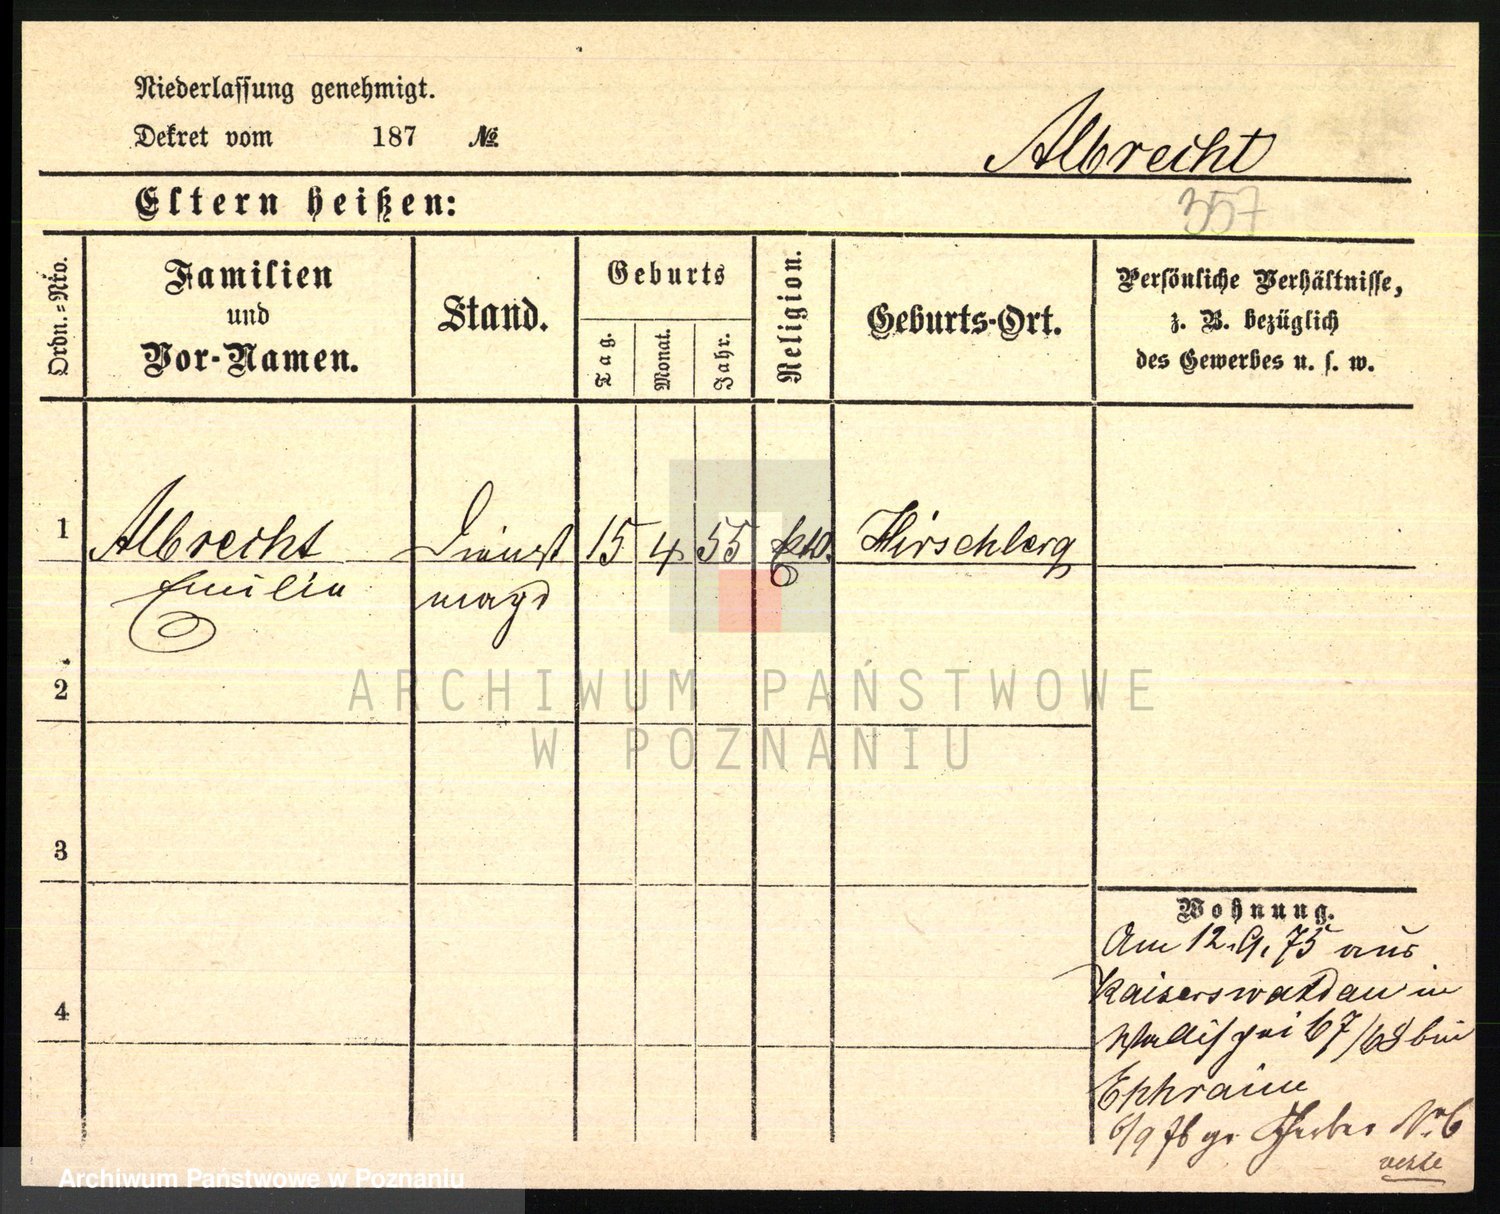 Niederlassung genehmigt.
Dekret vom 187 №
Albrecht
Eltern heißen:
357
Ordn.-Nro.
Familien und Vor-Namen.
Stand.
Geburts
Tag.
Monat.
Jahr.
Religion.
Geburts-Ort.
Persönliche Verhältnisse,
z. B. bezüglich
des Gewerbes u. s. w.
1 Albrecht Dienst 15 4 55 Hirschberg
Emilie magd
2
ARCHIWUM PAŃSTWOWE
W POZNANIU
3
Wohnung.
Am 12. 9. 75 aus
Kaiserswaldau in
Wallischei 67/68 bei
4
Ephraim
6/9 76 Gerber Nr 6
Archiwum Państwowe w Poznaniu